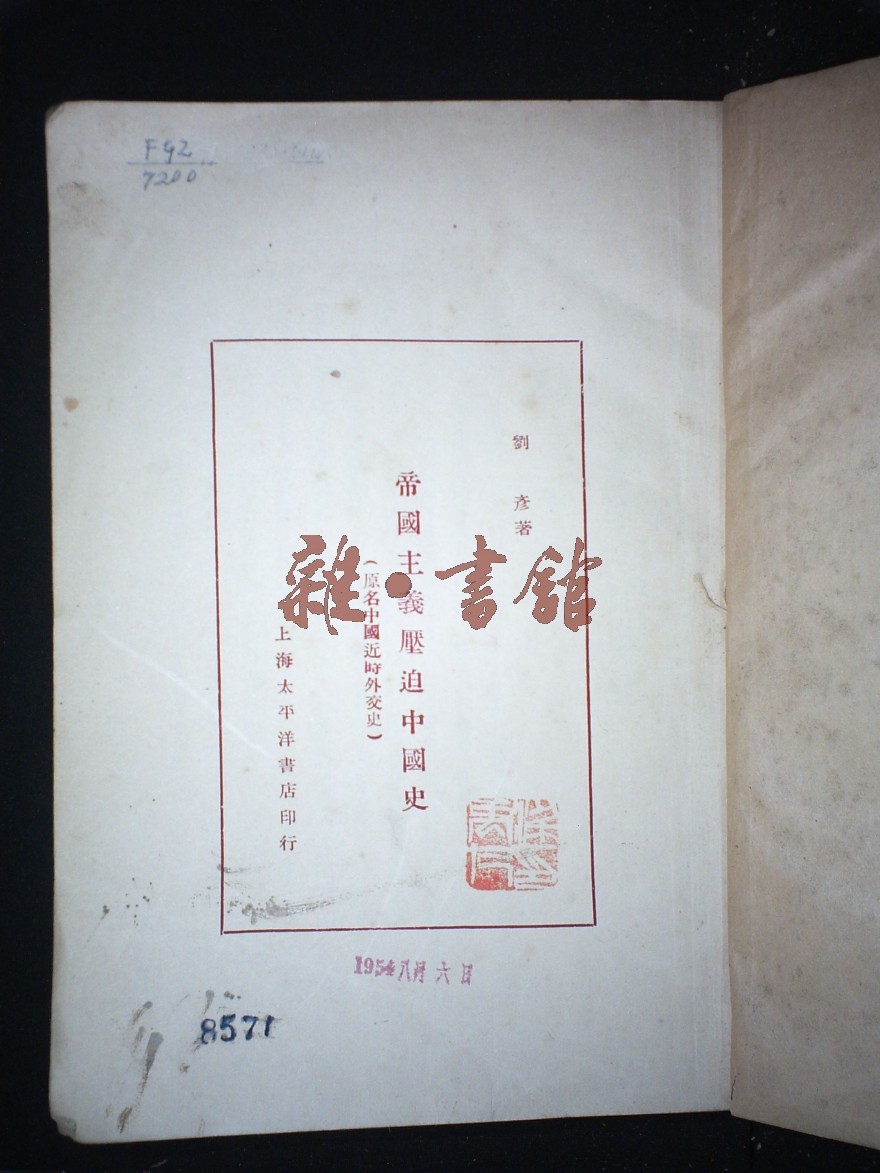 F92
7200
劉彥著
帝國主義壓迫中國史
(原名中國近時外交史)
上海太平洋書店印行
雜·書館
1954八月六日
8571